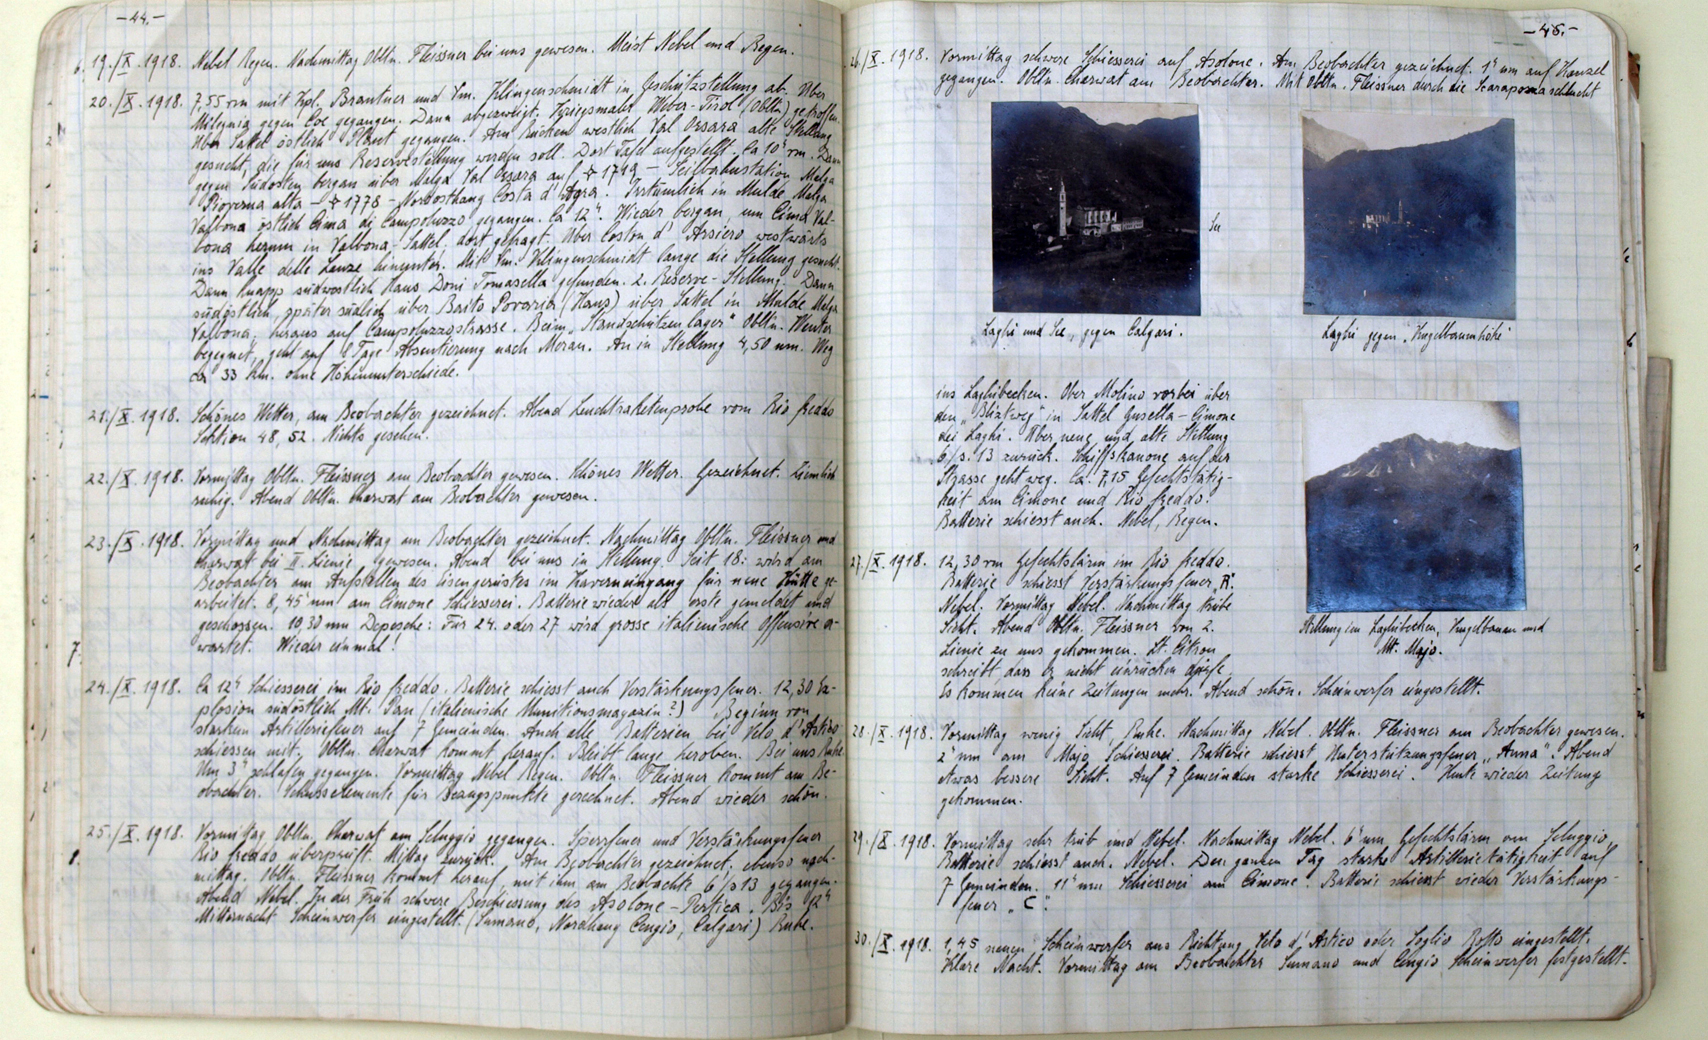 -44.-
19./X.1918. Nebel Regen. Nachmittag Obltn. Fleissner bei uns gewesen. Meist Nebel und Regen.
20./X.1918. 7,55 vm mit Kpl. Brantner und Vm. Klingenschmidt in Geschützstellung ab. Über
Milegnia gegen Coe gegangen. Dann abgezweigt. Kriegsmaler Weber-Tirol (Obltn) getroffen.
Über Sattel östlich Plaut gegangen. Am Rücken westlich Val Orsara alte Stellung
gesucht, die für uns Reservestellung werden soll. Dort Tafel aufgestellt. Ca 10h vm. Dann
gegen Südosten bergan über Malga Val Orsara auf ✧ 1719 - Seilbahnstation Malga
Pioverna alta - ✧ 1778 - Nordosthang Costa d'Agra. Irrtümlich in Mulde Malga
Valbona östlich Cima di Campoluzzo gegangen. Ca 12h. Wieder bergan, um Cima Val-
bona herum in Valbona-Sattel. dort gefragt. Über Coston d'Arsiero, westwärts
ins Valle delle Lanze hinunter. Mit Vm. Klingenschmidt lange die Stellung gesucht.
Dann knapp südwestlich Haus Doni Tomasella gefunden. 2. Reserve-Stellung. Dann
südöstlich, später südlich über Baito Povaria (Haus) über Sattel in Mulde Malga
Valbona, heraus auf Campoluzzostrasse. Beim "Standschützenlager" Obltn. Wenter
begegnet, geht auf 8 Tage Absentierung nach Meran. An in Stellung 4,50 nm. Weg
ca 33 km. ohne Höhenunterschiede.
21./X.1918. Schönes Wetter, am Beobachter gezeichnet. Abend Leuchtraketenprobe vom Rio freddo
Sektion 48, 52. Nichts gesehen.
22./X.1918. Vormittag Obltn. Fleissner am Beobachter gewesen. Schönes Wetter. Gezeichnet. Ziemlich
ruhig. Abend Obltn. Charwat am Beobachter gewesen.
23./X.1918. Vormittag und Nachmittag am Beobachter gezeichnet. Nachmittag Obltn. Fleissner und
Charwat bei II. Lienie gewesen. Abend bei uns in Stellung. Seit 18. wird am
Beobachter am Aufstellen des Eisengerüstes im Kaverneingang für neue Hütte ge-
arbeitet. 8,45 nm am Cimone Schiesserei. Batterie wieder als erste gemeldet und
geschossen. 10,30 nm Depesche: Für 24. oder 27 wird grosse italienische Offensive er-
wartet. Wieder einmal!
24./X.1918. Ca 12h Schiesserei im Rio freddo. Batterie schiesst auch Verstärkungsfeuer. 12,30 Ex-
plosion südöstlich Mt. Pau (italienische Munitionsmagazin?) Beginn von
starkem Artilleriefeuer auf 7 Gemeinden. Auch alle Batterien bei Velo d'Astico
schiessen mit. Obltn. Charwat kommt herauf. Bleibt lange heroben. Bei uns Ruhe.
Um 3h schlafen gegangen. Vormittag Nebel Regen. Obltn. Fleissner kommt am Be-
obachter. Schusselemente für Bezugspunkte gerechnet. Abend wieder schön.
25./X.1918. Vormittag Obltn. Charwat am Seluggio gegangen. Sperrfeuer und Verstärkungsfeuer
Rio freddo überprüft. Mittag zurück. Am Beobachter gezeichnet, ebenso nach-
mittag. Obltn. Fleissner kommt herauf, mit ihm am Beobachte 6/s 13 gegangen.
Abend Nebel. In der Früh schwere Beschiessung des Asolone-Pertica. Bis 12h
Mitternacht Scheinwerfer eingestellt. (Sumano, Nordhang Cengio, Calgari) Ruhe.
-45.-
26./X.1918. Vormittag schwere Schiesserei auf Asolone. Am Beobachter gezeichnet. 1h nm auf Kanzel
gegangen. Obltn. Charwat am Beobachter. Mit Obltn. Fleissner durch die Scarapanaschlucht
See
Laghi und See, gegen Calgari.
Laghi gegen "Kugelbaumhöhe"
ins Laghibecken. Ober Molino vorbei über
den "Blitzweg" in Sattel Gusella-Cimone
bei Laghi. Über neue und alte Stellung
6/s. 13 zurück. Schiffskanone auf der
Strasse geht weg. Ca. 7,15 Gefechtstätig-
keit am Cimone und Rio freddo.
Batterie schiesst auch. Nebel, Regen.
Stellung im Laghibecken, Kugelbaum und
Mt. Majo.
27./X.1918. 12,30 vm Gefechtslärm im Rio freddo.
Batterie schiesst Verstärkungsfeuer "R".
Nebel. Vormittag Nebel. Nachmittag trübe
Sicht. Abend Obltn. Fleissner von 2.
Lienie zu uns gekommen. Lt. Citron
schreibt dass er nicht einrücken dürfe.
Es kommen keine Zeitungen mehr. Abend schön. Scheinwerfer eingestellt.
28./X.1918. Vormittag wenig Sicht. Ruhe. Nachmittag Nebel. Obltn. Fleissner am Beobachter gewesen.
2h nm am Majo Schiesserei. Batterie schiesst Unterstützungsfeuer "Anna". Abend
etwas bessere Sicht. Auf 7 Gemeinden starke Schiesserei. Heute wieder Zeitung
gekommen.
29./X.1918. Vormittag sehr trüb und Nebel. Nachmittag Nebel. 6h nm Gefechtslärm am Seluggio.
Batterie schiesst auch. Nebel. Den ganzen Tag starke Artillerietätigkeit auf
7 Gemeinden. 11h nm Schiesserei am Cimone. Batterie schiesst wieder Verstärkungs-
feuer "C".
30./X.1918. 1,45 neuen Scheinwerfer aus Richtung Velo d'Astico oder Soglio Rotto eingestellt.
Klare Nacht. Vormittag am Beobachter Sumano und Cengio Scheinwerfer festgestellt.